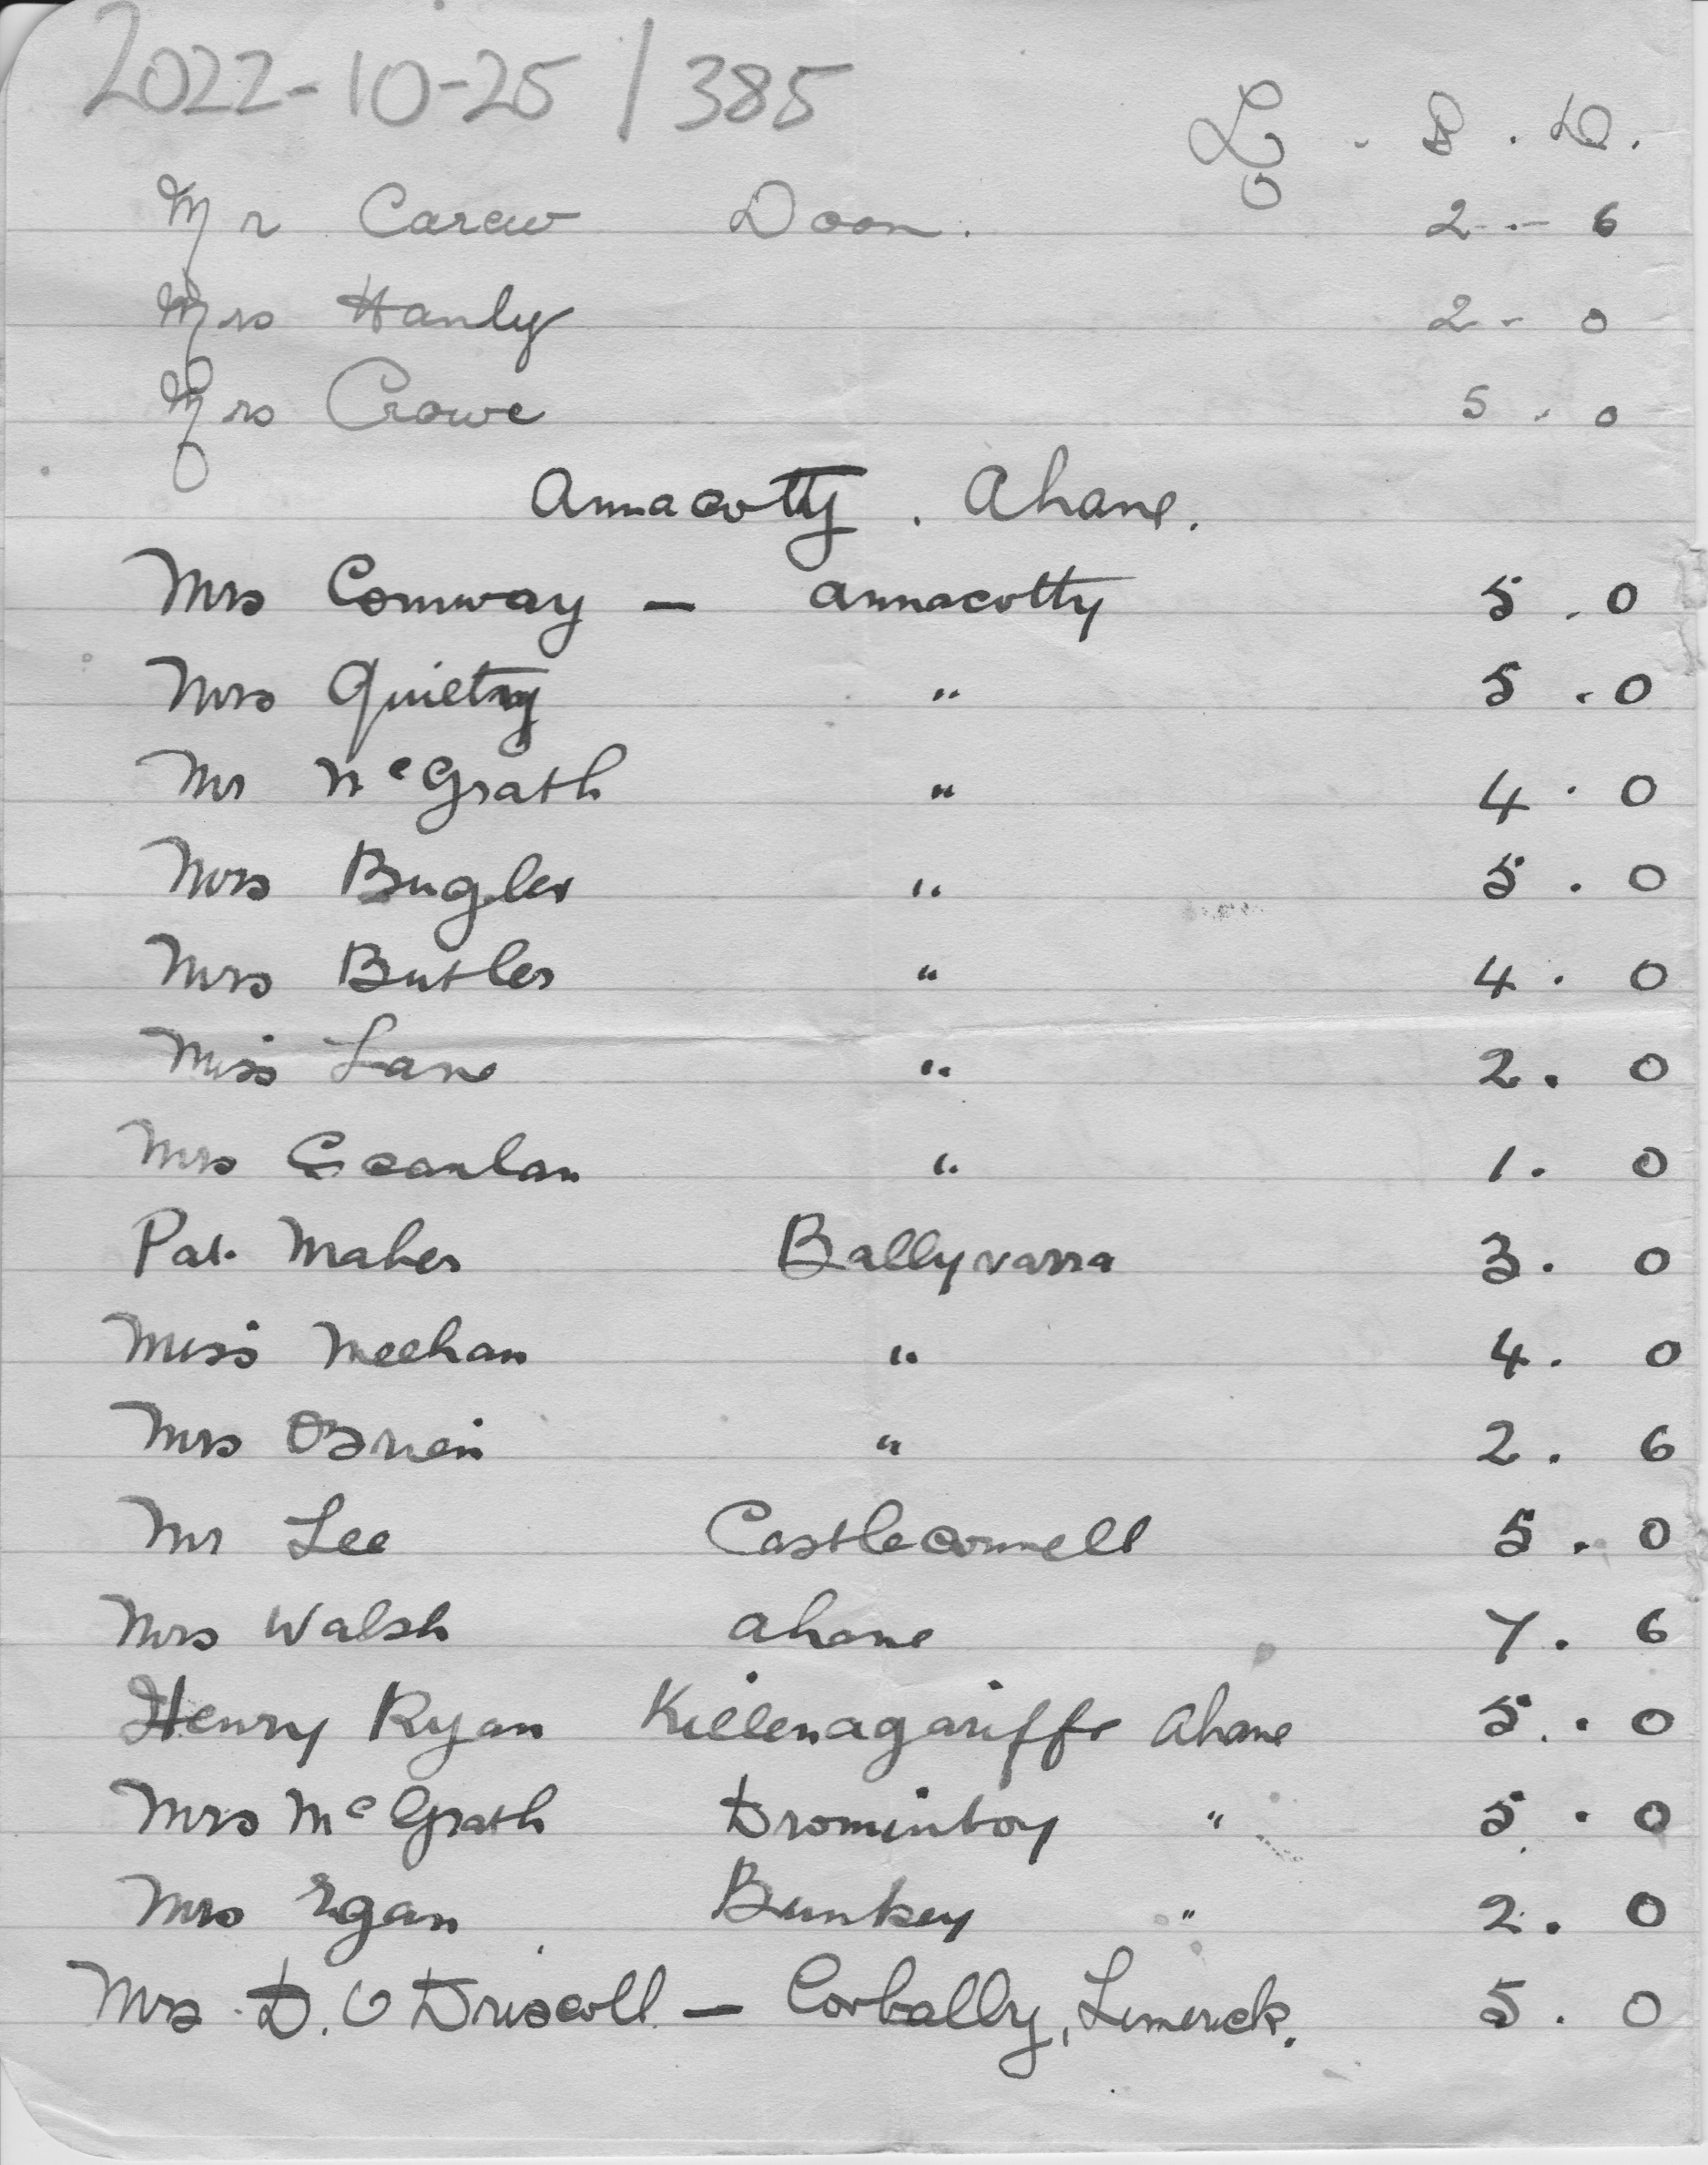 2022-10-25 / 385
£ . S . D.
Mr Carew Doon. 2 - 6
Mrs Hanly 2 - 0
Mrs Crowe 5 . 0
Annacotty . Ahane.
Mrs Conway — Annacotty 5 . 0
Mrs Quielty " 5 . 0
Mr McGrath " 4 . 0
Mrs Bugler " 5 . 0
Mrs Butler " 4 . 0
Miss Lane " 2 . 0
Mrs Scanlan " 1 . 0
Pat. Maher Ballyvarra 3 . 0
Miss Meehan " 4 . 0
Mrs OBrien " 2 . 6
Mr Lee Castleconnell 5 . 0
Mrs Walsh Ahane 7 . 6
Henry Ryan Killenagariffe Ahane 5 . 0
Mrs McGrath Dromintoy " 5 . 0
Mrs Egan Bunkey " 2 . 0
Mrs D. O Driscoll — Corbally, Limerick. 5 . 0